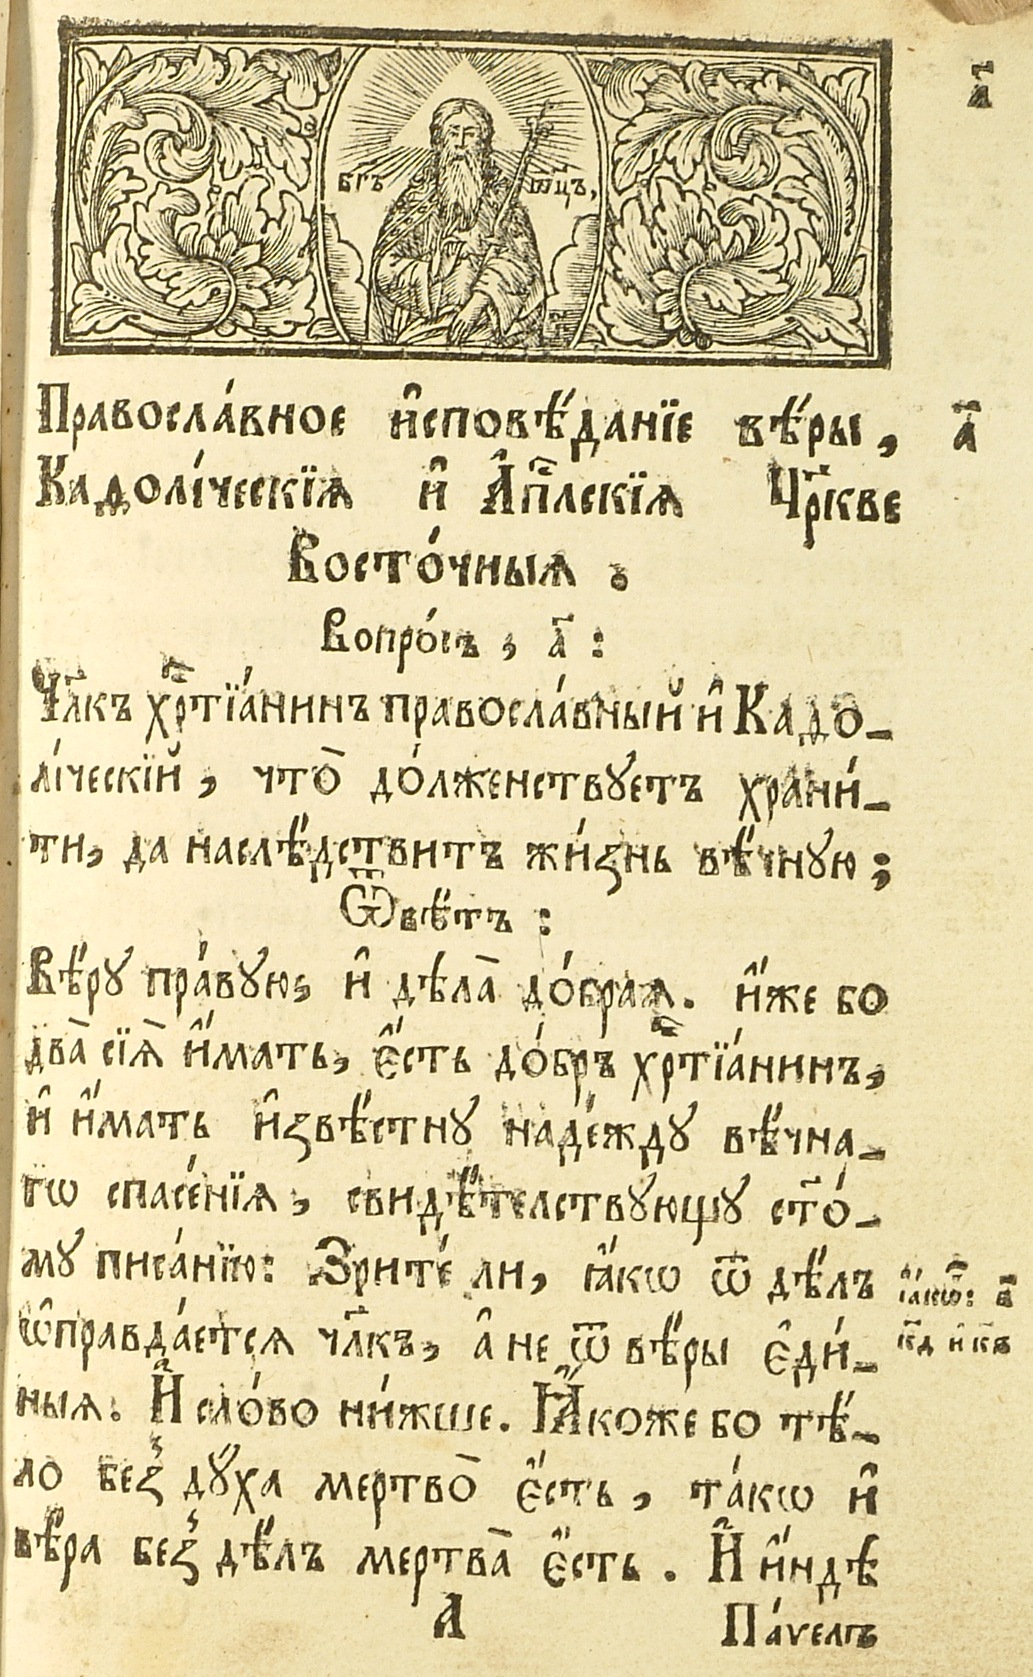 а҃
БГЪ ѾЦЪ,
Правосла́вное и҆сповѣ́данїе вѣ́ры, а҃
Каѳолі́ческїѧ и҆ А҆п҃лскїѧ Ц҃ркве
Восто́чныѧ .
Вопро́съ , а҃ :
Ч҃лкъ хр҃тїа́нинъ правосла́вный и҆ Каѳо-
лі́ческїй , что̀ до́лженствуетъ храни́-
ти, да наслѣ́дствитъ жи́знь вѣ́чную ;
Ѿвѣ́тъ :
Вѣ́ру пра́вую, и҆ дѣла̀ до́браѧ. и҆́же бо
два̀ сїѧ̀ и҆́мать, є҆́сть до́бръ хр҃тїа́нинъ,
и҆ и҆́мать и҆звѣ́стну наде́жду вѣ́чна-
гѡ спасе́нїѧ , свидѣ́телствующу ст҃о́-
му писа́нїю: Зри́те ли, ꙗ҆́кѡ ѿ дѣ́лъ ꙗ҆́кѡ: в҃
ѡ҆правда́етсѧ ч҃лкъ, а҆ не ѿ вѣ́ры є҆ди́- к҃д и҆ к҃ѕ
ныѧ. И҆ сло́во ни́жше. Ꙗ҆́коже бо тѣ́-
ло без̾ дꙋ́ха мертво̀ є҆́сть , та́кѡ и҆
вѣ́ра без̾ дѣ́лъ мертва̀ є҆́сть . И҆ и҆́ндѣ
А Па́ѵелъ